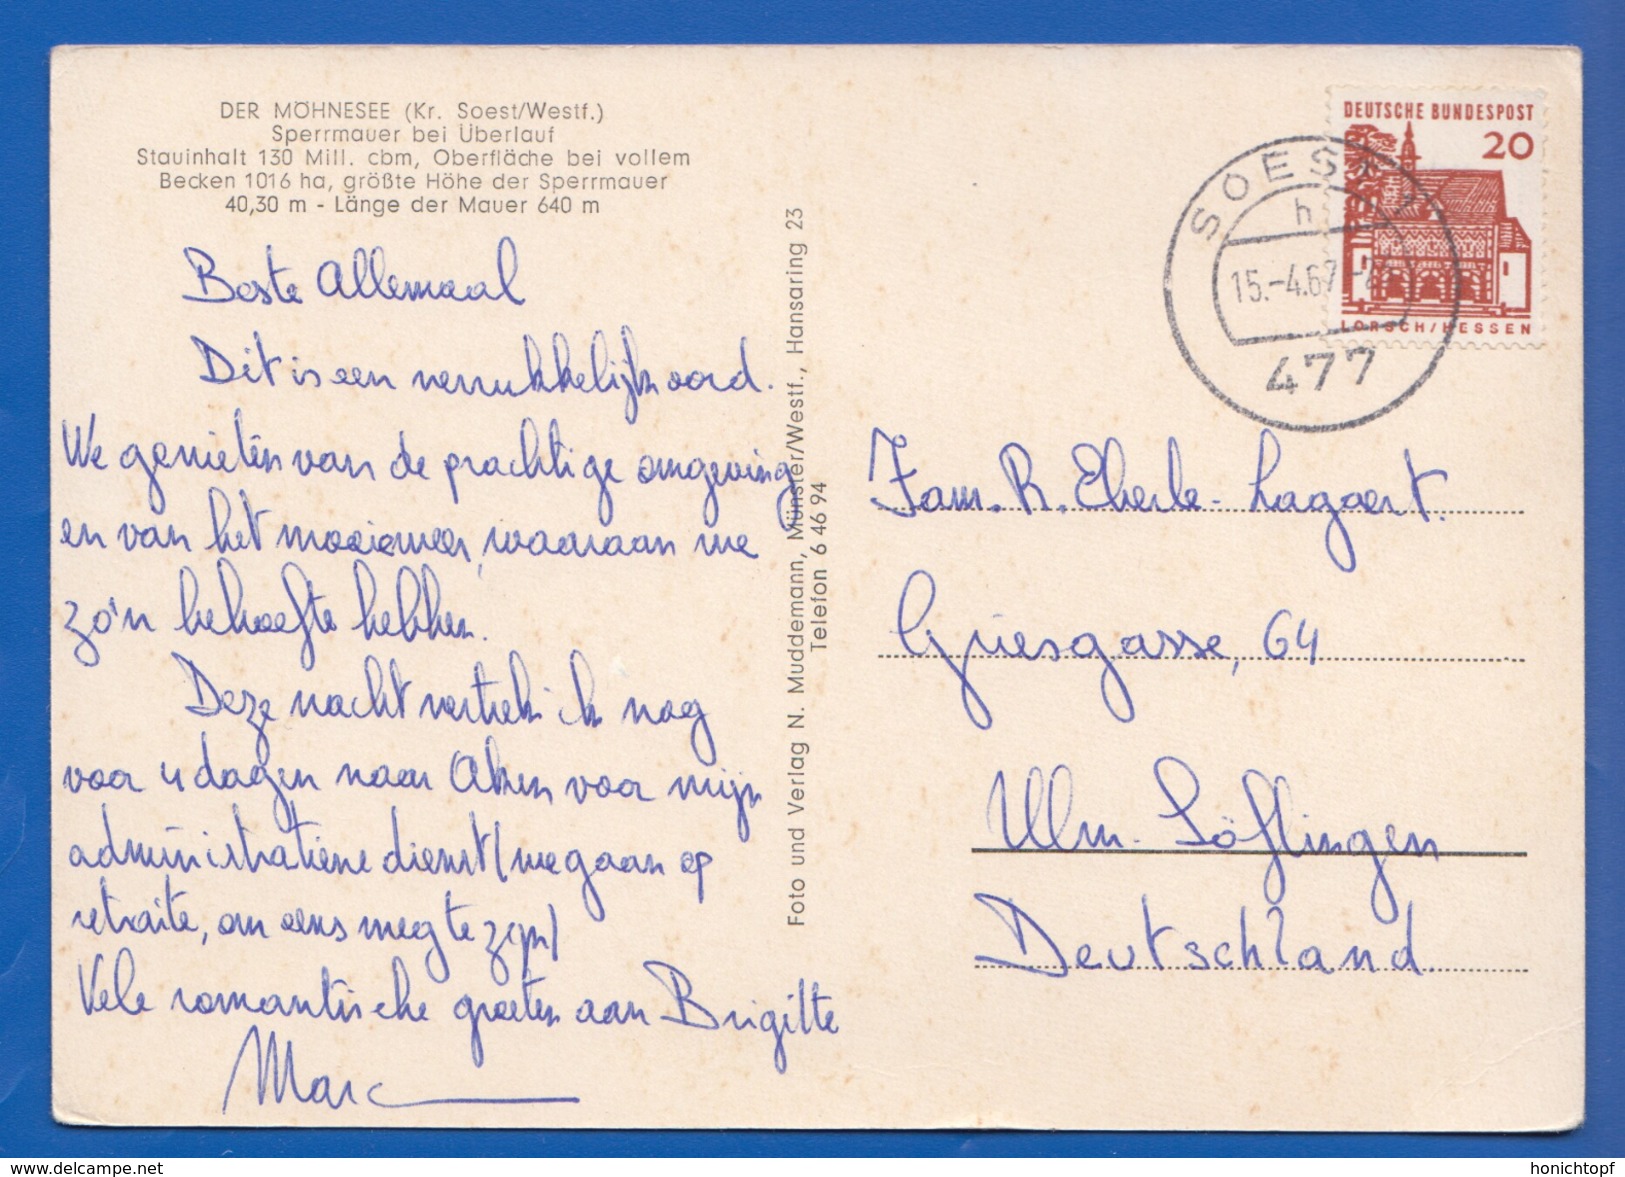 DER MÖHNESEE (Kr. Soest/Westf.)
Sperrmauer bei Überlauf
Stauinhalt 130 Mill. cbm, Oberfläche bei vollem
Becken 1016 ha, größte Höhe der Sperrmauer
40,30 m - Länge der Mauer 640 m
Beste Allemaal
Dit is een verrukkelijk oord.
We genieten van de prachtige omgeving
en van het mooie weer, waaraan we
zo'n behoefte hebben.
Deze nacht vertrek ik nog
voor 4 dagen naar Aken voor mijn
administratieve dienst (we gaan op
retraite, om eens weg te zijn)
Vele romantische groeten aan Brigitte
Marc
Foto und Verlag N. Muddemann, Münster/Westf., Hansaring 23
Telefon 6 46 94
DEUTSCHE BUNDESPOST
20
LORSCH/HESSEN
SOEST 1
h
15.-4.67
477
Fam. R. Eberle-Lagaert.
Griesgasse, 64
Ulm-Söflingen
Deutschland
honichtopf
http://www.delcampe.net